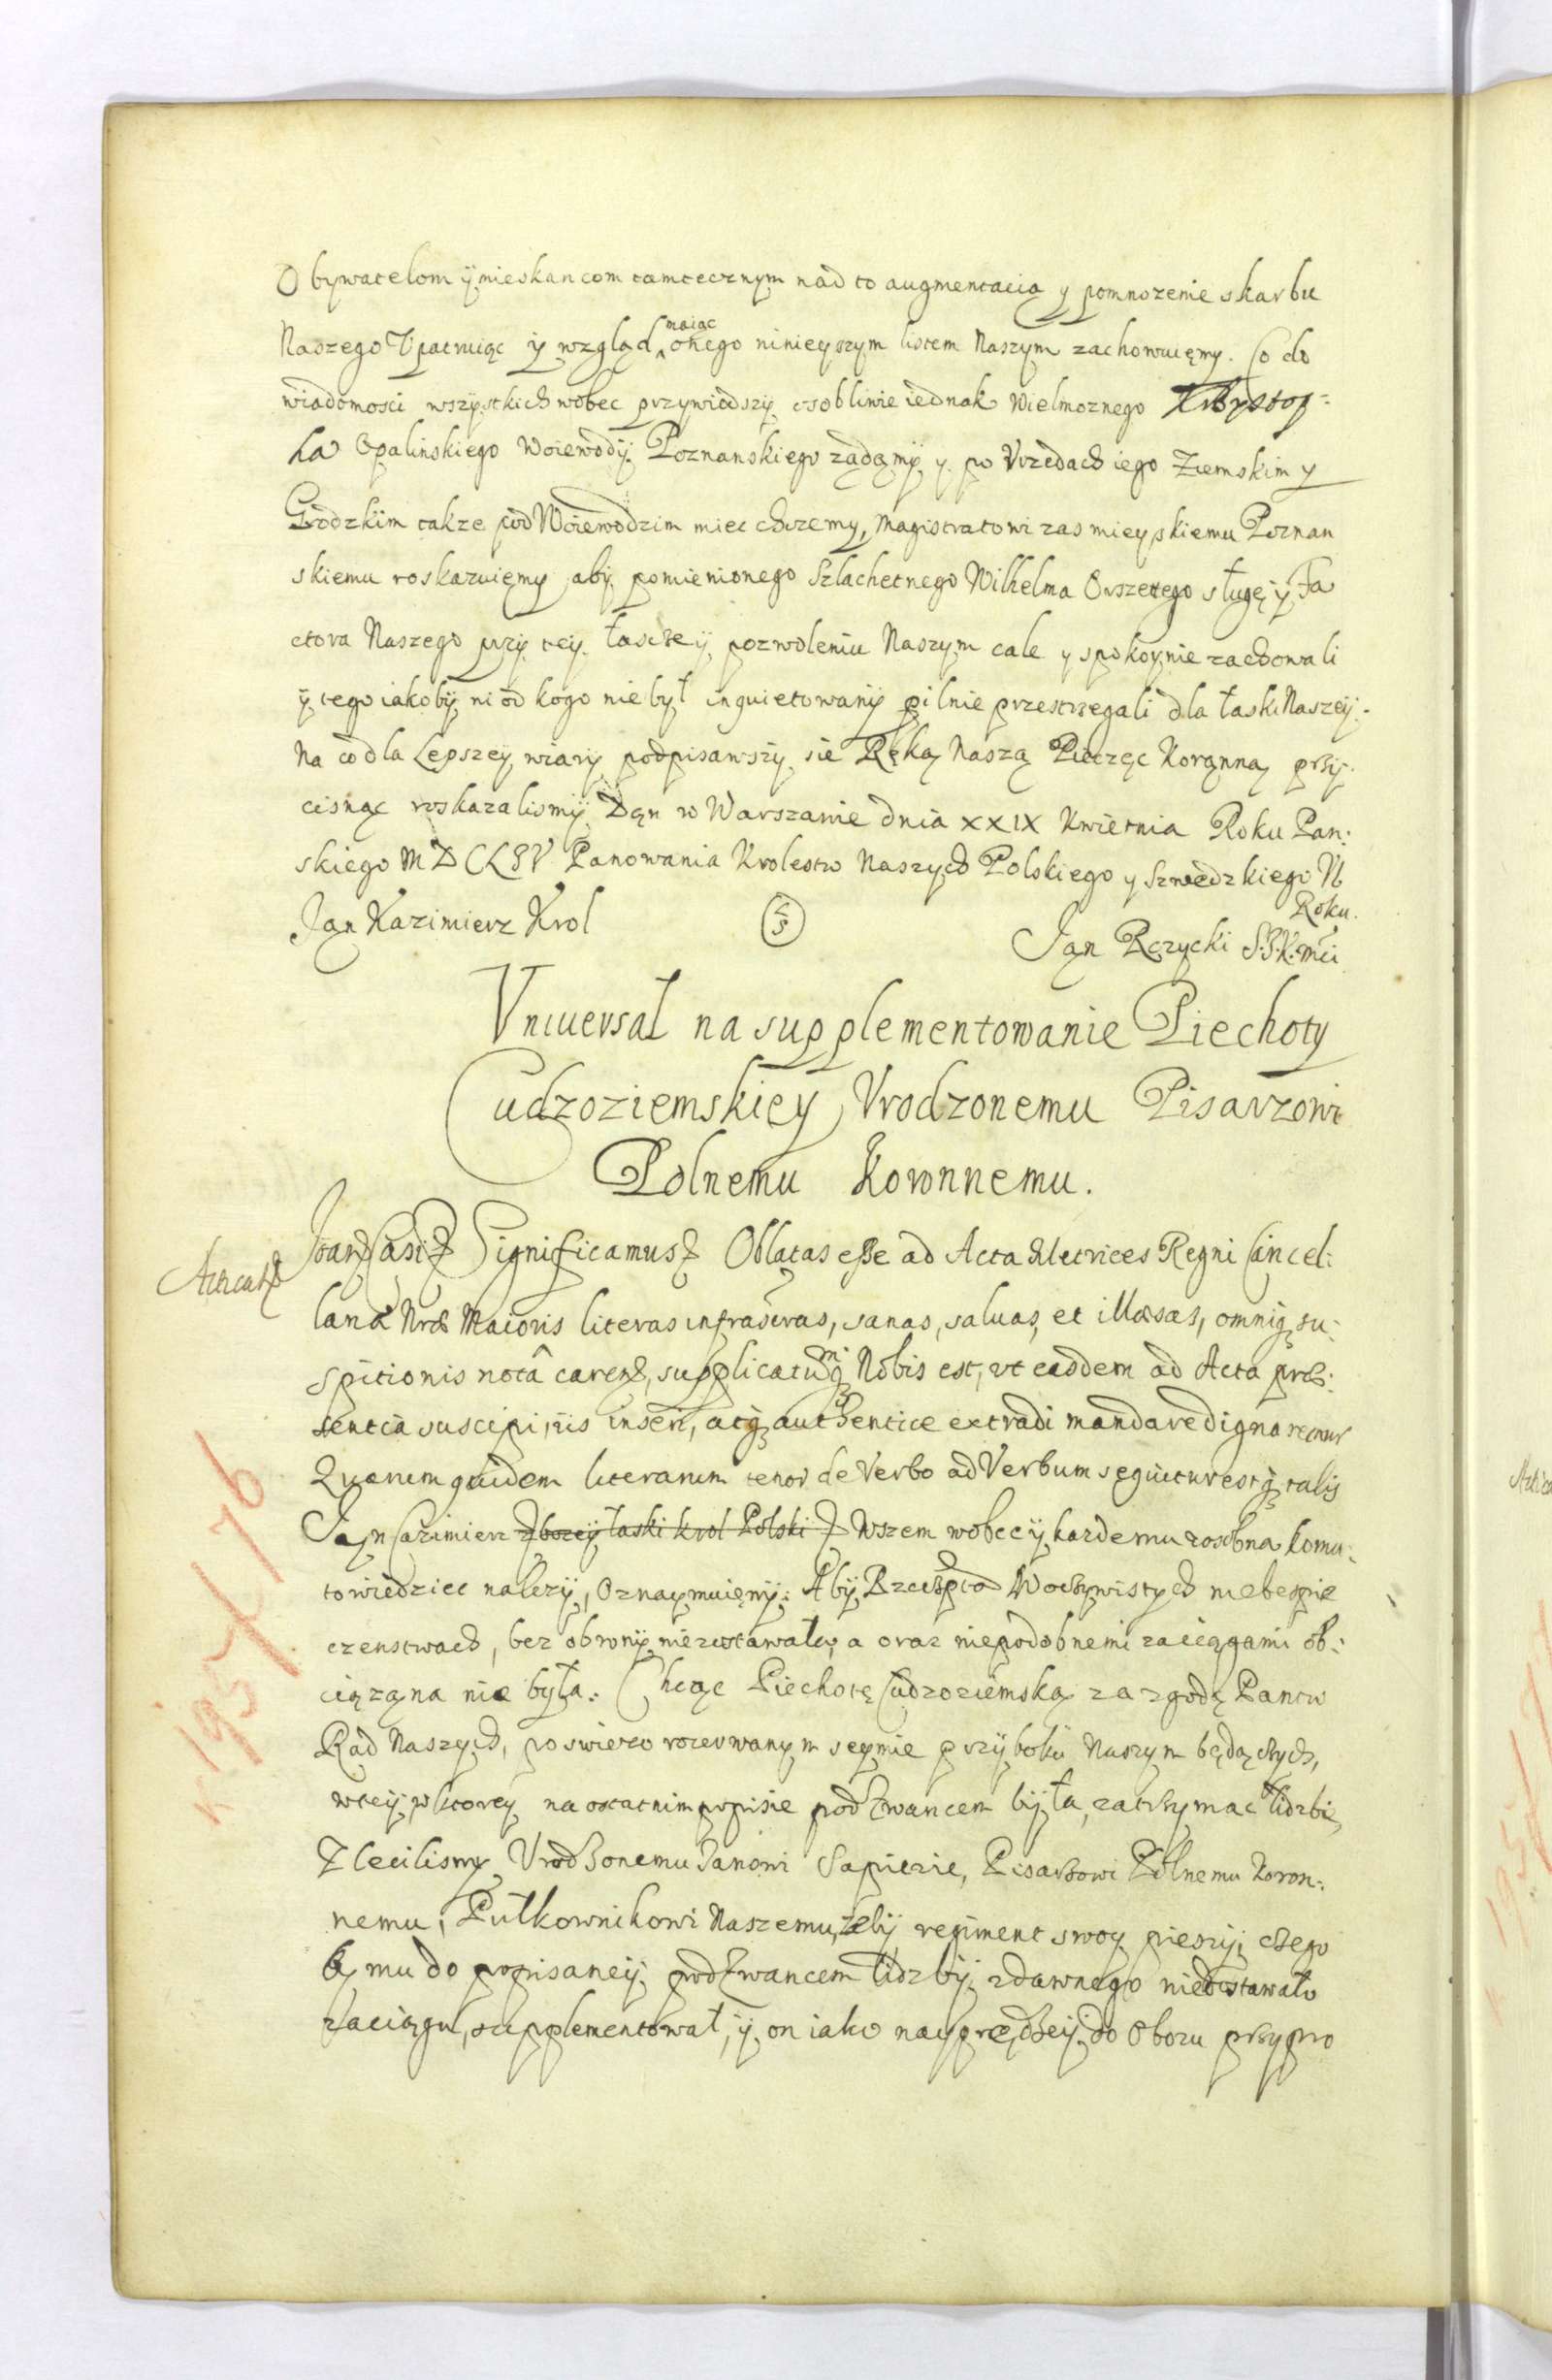 Obywatelom ÿ mieskancom tamtecznym nad to augmentacią y pomnozenie skarbu
Naszego Vpatruiąc ÿ wzgląd maiąc onego ninieyszym listem Naszym zachowuięmy. Co do
wiadomosci wszÿstkich wobec przywiodszÿ osobliwie iednak Wielmoznego Krzystop=
ha Opalinskiego Woiewodÿ Poznanskiego ządąmÿ y po Vrzedach iego Ziemskim y
Grodzkim takze pod Woiewodzim miec chcemy, Magistratowi zas mieyskiemu Poznan
skiemu roskazuięmy abÿ pomienionego Szlachetnego Wilhelma Orszettego sługę ÿ Fa
ctora Naszego przÿ teÿ łasce ÿ pozwoleniu Naszym cale y spokoynie zachowali
ÿ tego iakobÿ ni od kogo nie był inquietowanÿ pilnie przestrzegali dla łaski Naszeÿ.
Na co dla Lepszeÿ wiarÿ podpisawszÿ sie Ręką Naszą Pieczęc Korąnną przÿ
cisnąc roskazalismÿ Dąn w Warszawie dnia XXIX Kwietnia Roku Pan:
skiego MDCLV Panowania Krolestw Naszych Polskiego y Szwedzkiego
Roku.
Ian Kazimierz Krol
LS
Ian Ręzycki S.J.K. Mci
Vniuersał na supplementowanie Piechoty
Cudzoziemskiey Vrodzonemu Pisarzowi
Polnemu Koronnemu.
Ioan Casi Significamus Oblatas esse ad Acta Metrices Regni Cancel:
lariæ Nræ Maioris literas infrascras, sanas, saluas, et illæsas, omniq su:
spitionis notâ caren, supplicatumq Nobis est, vt easdem ad Acta præ:
sentia suscipi, iis inseri, atq authentice extradi mandare dignaremur
Quarum quidem literarum tenor de Verbo ad Verbum sequitur estq talis
Iąn Cazimierz z bozeÿ łaski krol Polski Wszem wobec ÿ kazdemu zosobna komu
to wiedziec nalezÿ, Oznaymuięmÿ: Abÿ Rzeczpta Woczywistych niebespie
czenstwach, bez obronÿ nie zostawała, a oraz niepodobnemi zaciągami ob:
ciąząna nie była: Chcąc Piechotę Cudzoziemską za zgodą Panow
Rad Naszych, po swiezo rozerwanym seymie przÿ boku Naszym będących,
wteÿ, wktorey na ostatnim popisie pod Zwancem bÿła, zatrzymac lidzbie,
Zlecilismy Vrodzonemu Panowi Sapiezie, Pisarzowi Polnemu Koron:
nemu, Pułkownikowi Naszemu, zebÿ regiment swoy pieszÿ, czego
by mu do popisaneÿ pod Zwancem lidzbÿ zdawnego niedostawało
zaciągu, supplementował, ÿ on iako nayprędzeÿ do Obozu przypro